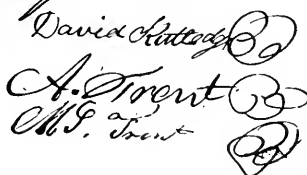 David Rutledge
A. Trent
M. G. a Trent